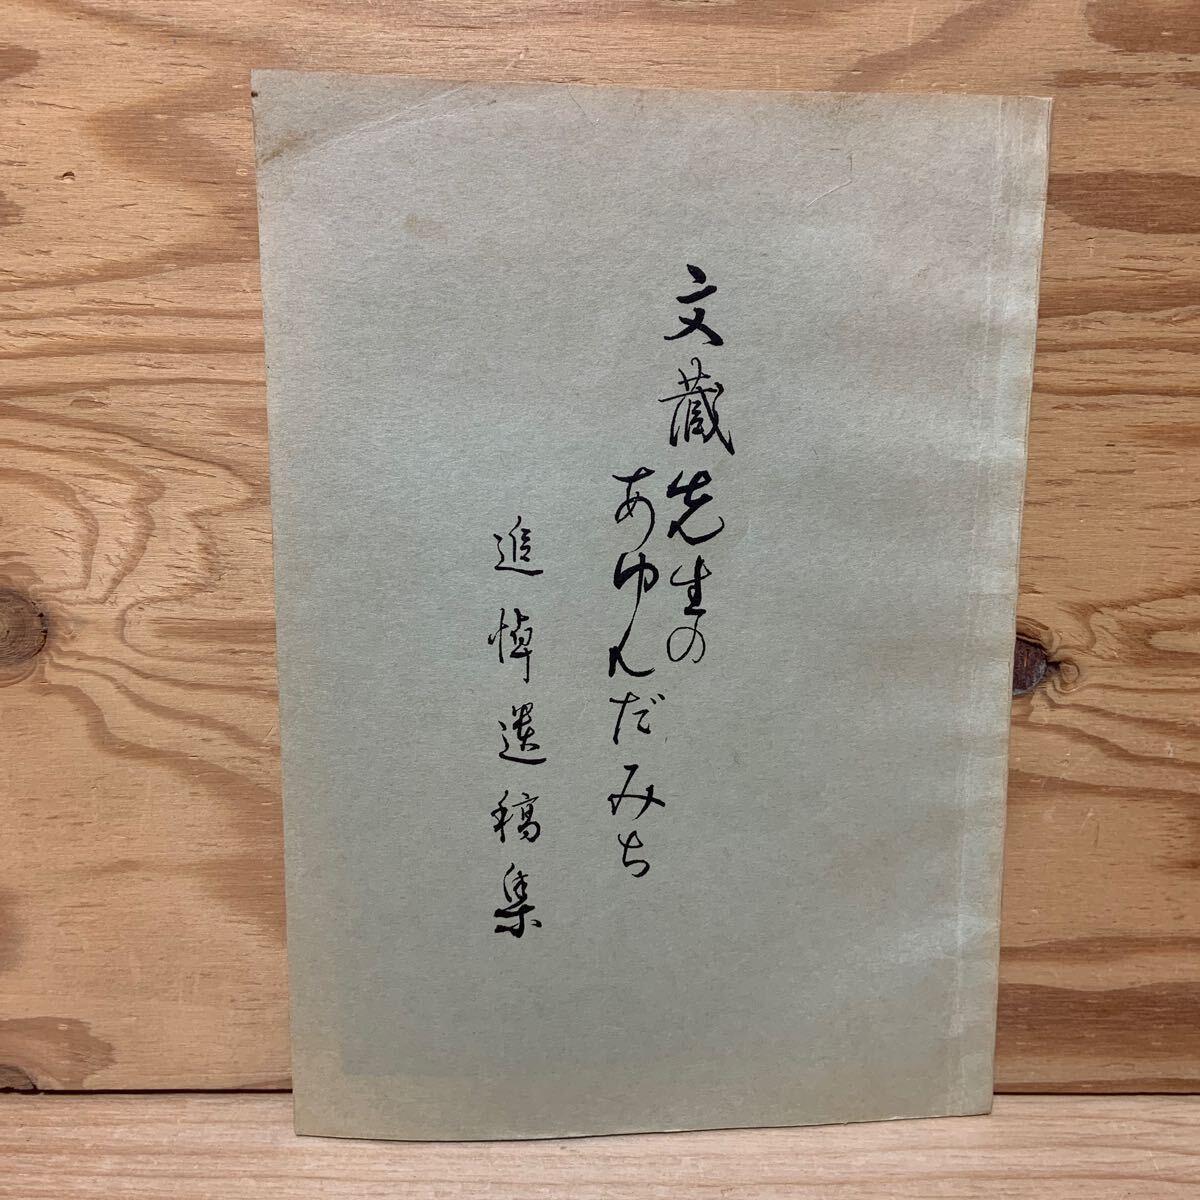 文蔵先生の
あゆんだみち
追悼遺稿集